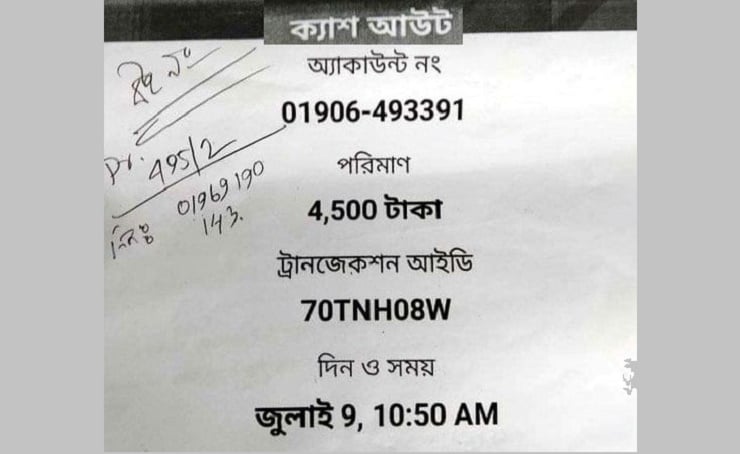 ক্যাশ আউট
অ্যাকাউন্ট নং
01906-493391
পরিমাণ
4,500 টাকা
ট্রানজেকশন আইডি
70TNH08W
দিন ও সময়
জুলাই 9, 10:50 AM
নং
Pr. 495/2
01969190
143.